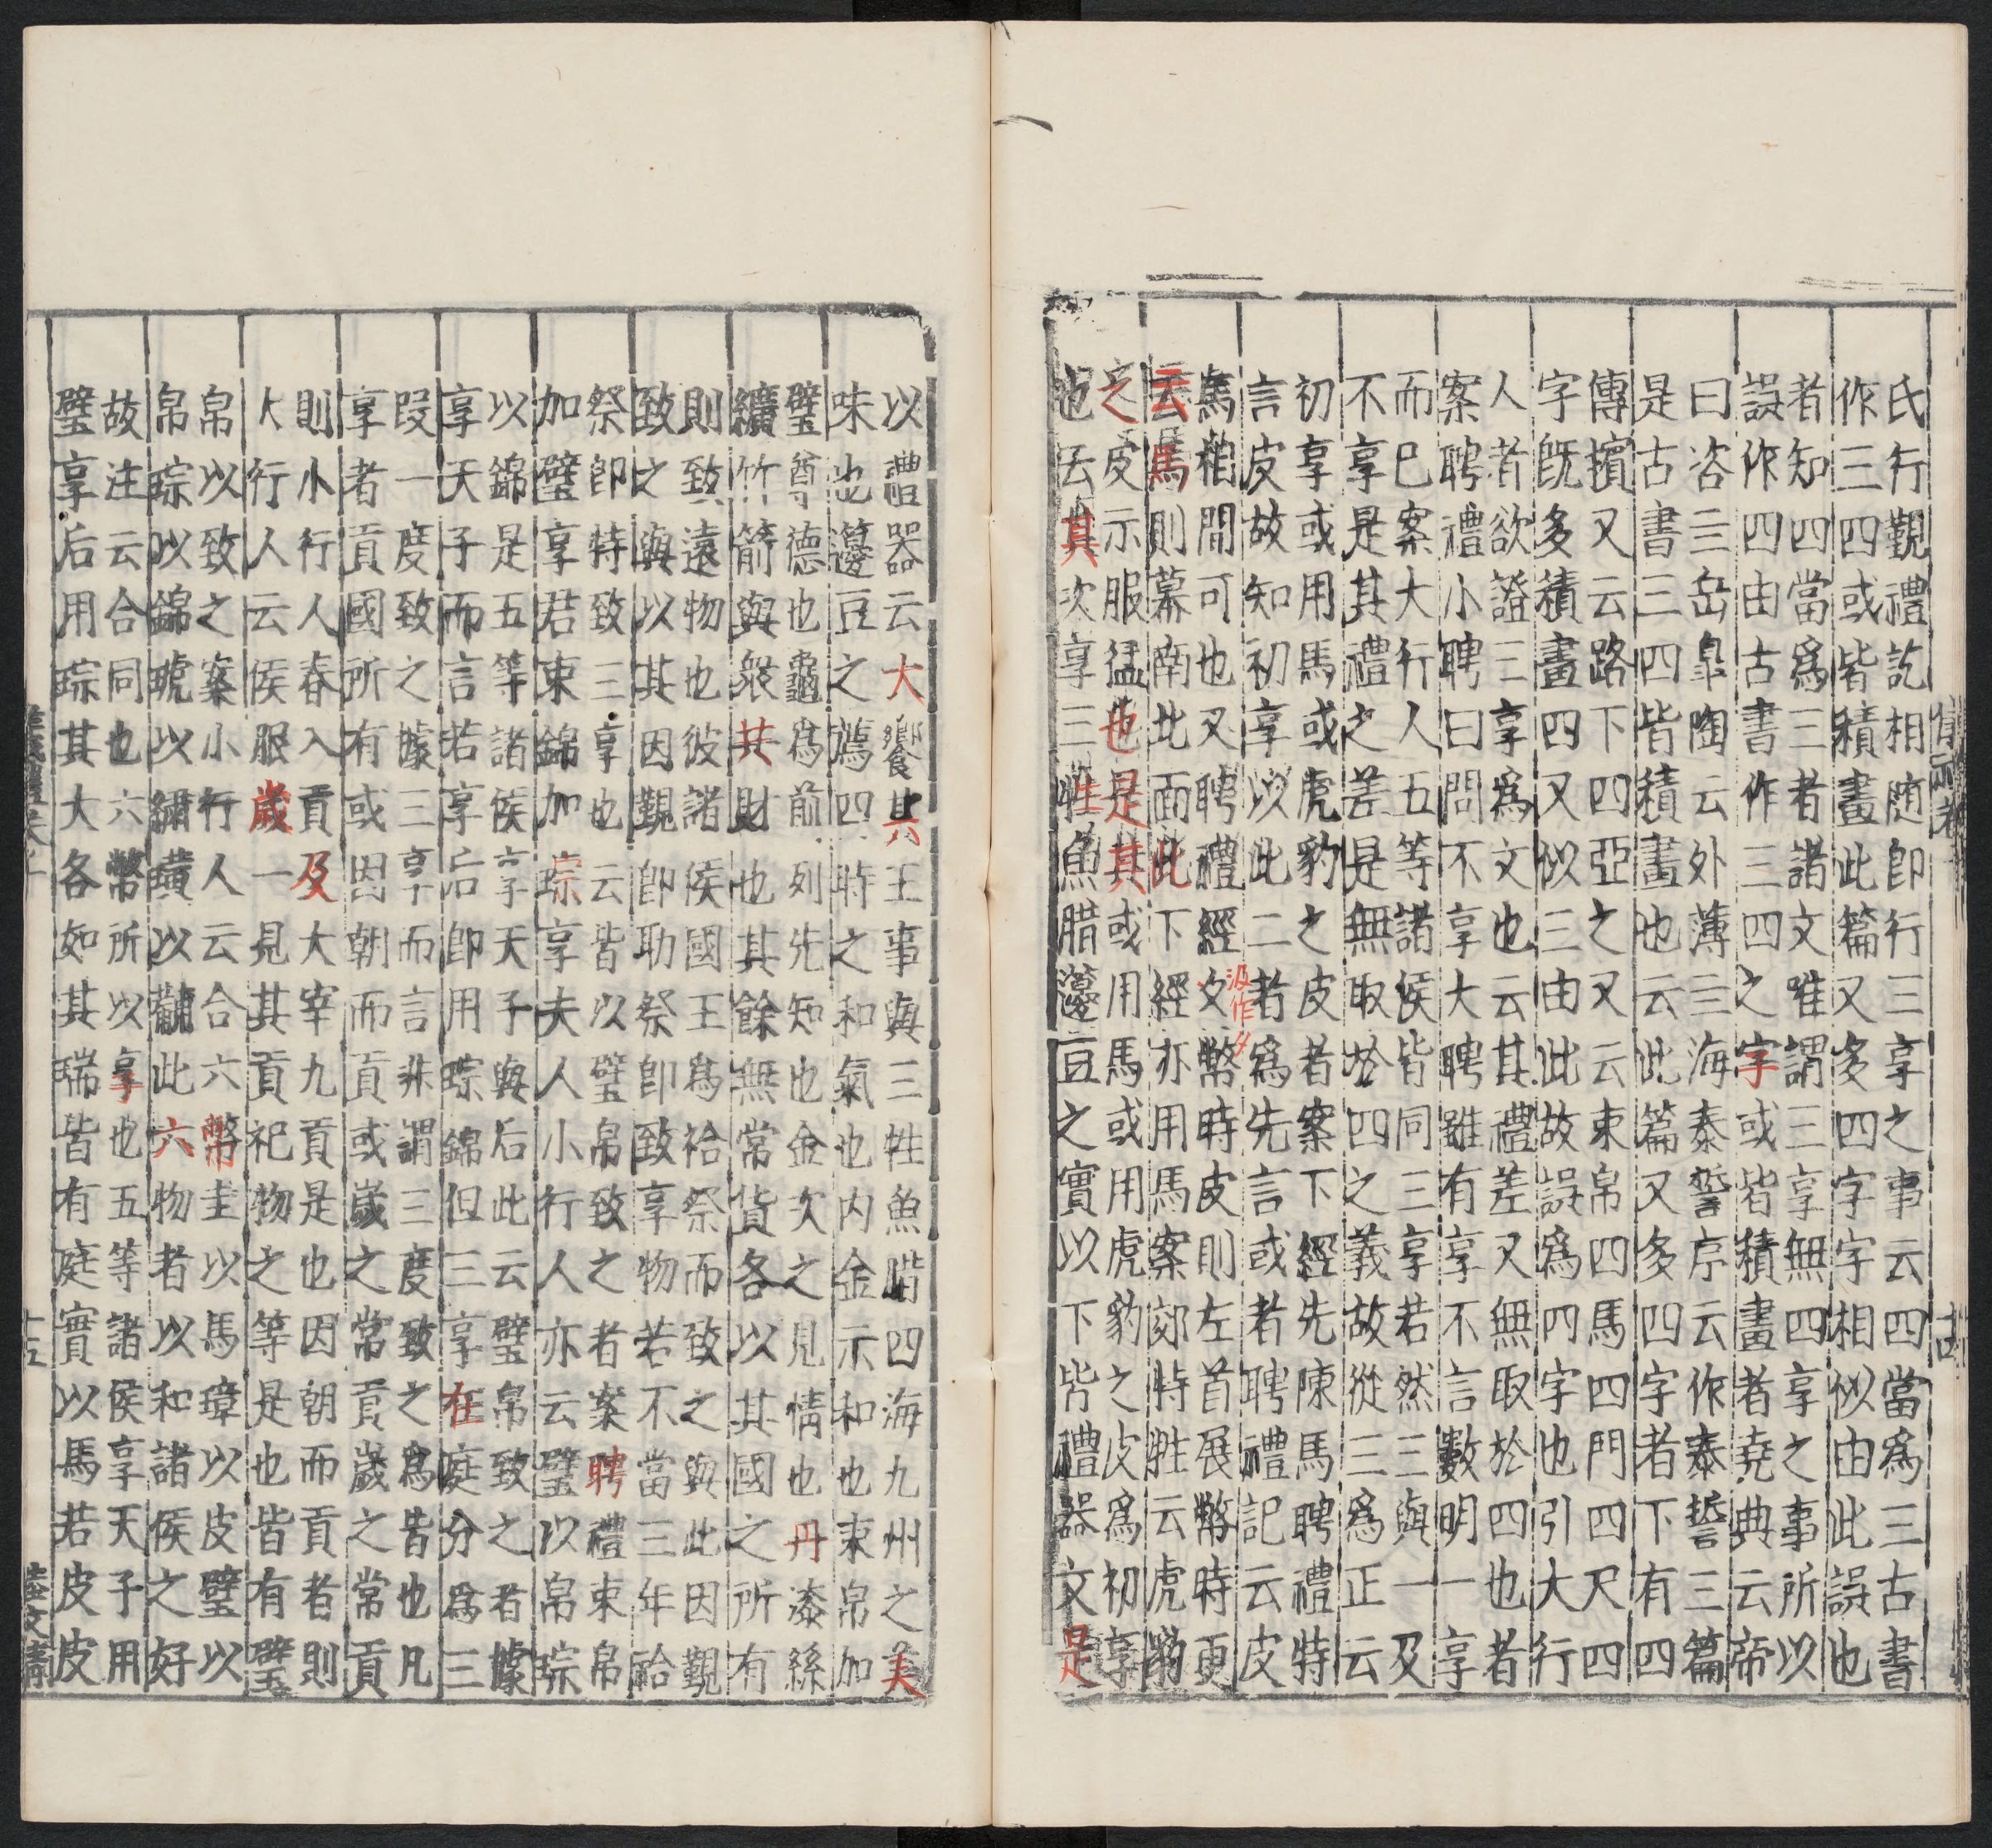 氏行覲禮訖相随即行三享之事云四當爲三古書
作三四或皆積畫此篇又多四字字相似由此誤也
者知四當爲三者諸文唯謂三享無四享之事所以
誤作四由古書作三四之字或皆積畫者堯典云帝
曰咨亖岳臯陶云外薄亖海泰誓序云作泰誓三篇
是古書三四皆積畫也云此篇又多四字者下有四
傳擯又云路下四亞之又云束帛四馬四門四尺四
字旣多積畫四又似三由此故誤爲四字也引大行
人者欲證三享爲文也云其禮差又無取於四也者
案聘禮小聘曰問不享大聘雖有享不言數明一享
而已案大行人五等諸侯皆同三享若然三與一及
不享是其禮之差是無取於四之義故從三爲正云
初享或用馬或虎豹之皮者案下經先陳馬聘禮特
言皮故知初享以此二者爲先言或者聘禮記云皮
馬相間可也又聘禮經文幣時皮則左首展幣時更
云馬則幕南北面此下經亦用馬案郊特牲云虎豹
之皮示服猛也是其或用馬或用虎豹之皮爲初享
也云其次享三牲魚腊籩豆之實以下皆禮器文是
汲作夕
十四
以禮器云大饗其王事與三牲魚腊四海九州之美
味也籩豆之薦四時之和氣也内金示和也束帛加
璧尊德也龜爲前列先知也金次之見情也丹漆絲
纊竹箭與衆共財也其餘無常貨各以其國之所有
則致遠物也彼諸侯國王爲祫祭而致之與此因覲
致之與以其因覲即助祭即致享物若不當三年祫
祭即特致三享也云皆以璧帛致之者案聘禮束帛
加璧享君束錦加琮享夫人小行人亦云璧以帛琮
以錦是五等諸侯享天子與后此云璧帛致之者據
享天子而言若享后即用琮錦但三享在庭分爲三
段一度致之據三享而言非謂三度致之爲皆也凡
享者貢國所有或因朝而貢或歲之常貢歲之常貢
則小行人春入貢及大宰九貢是也因朝而貢者則
大行人云侯服歲一見其貢祀物之等是也皆有璧
帛以致之案小行人云合六幣圭以馬璋以皮璧以
帛琮以錦琥以繡璜以黼此六物者以和諸侯之好
故注云合同也六幣所以享也五等諸侯享天子用
璧享后用琮其大各如其瑞皆有庭實以馬若皮皮
十五